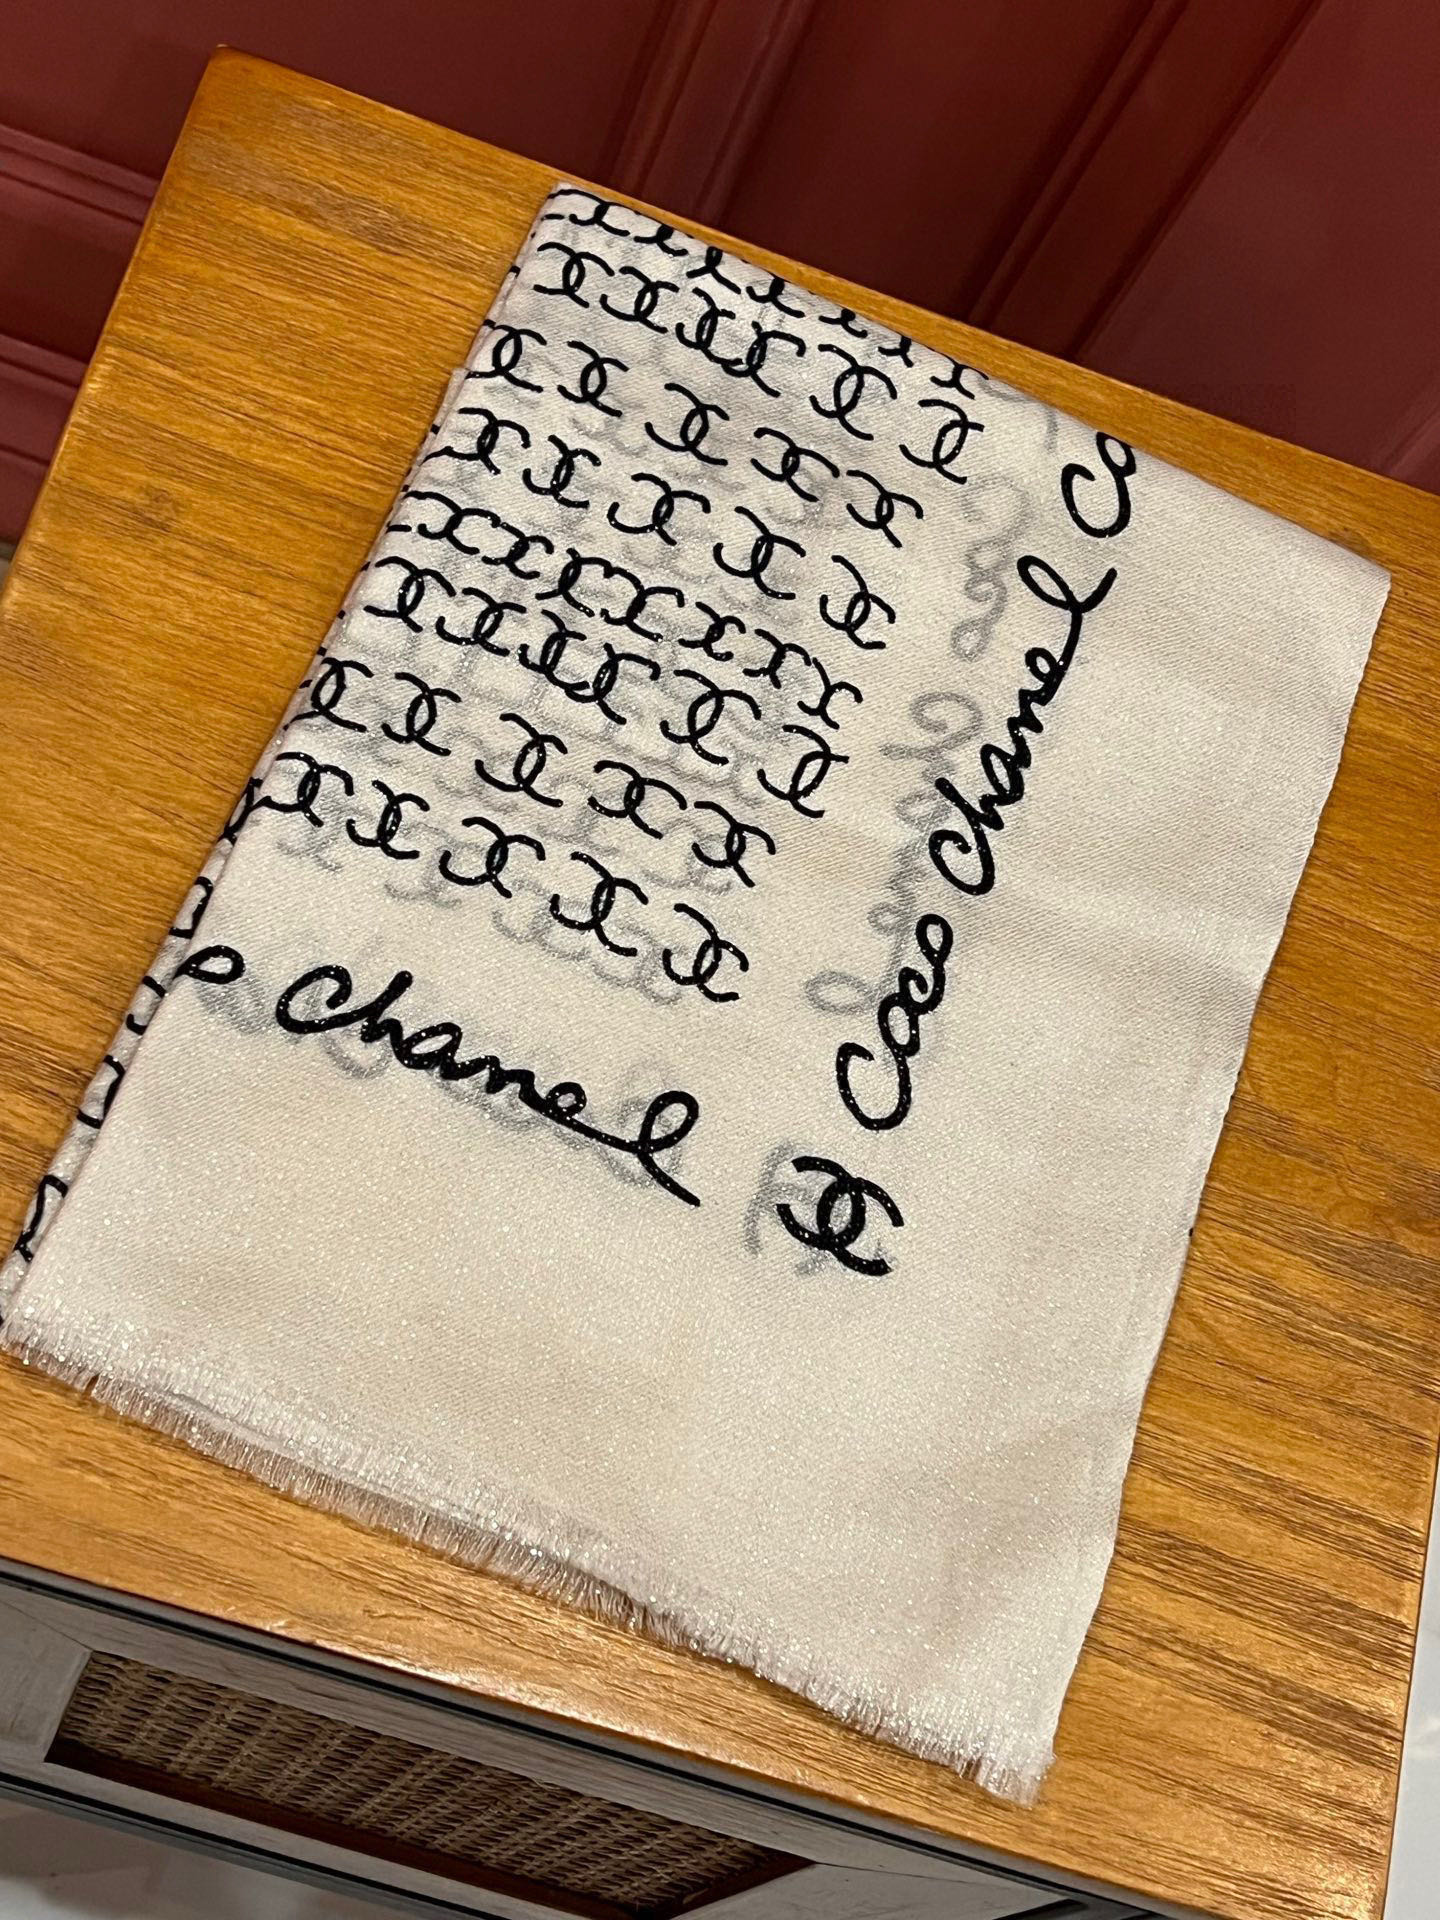 chanel
coco chanel
co